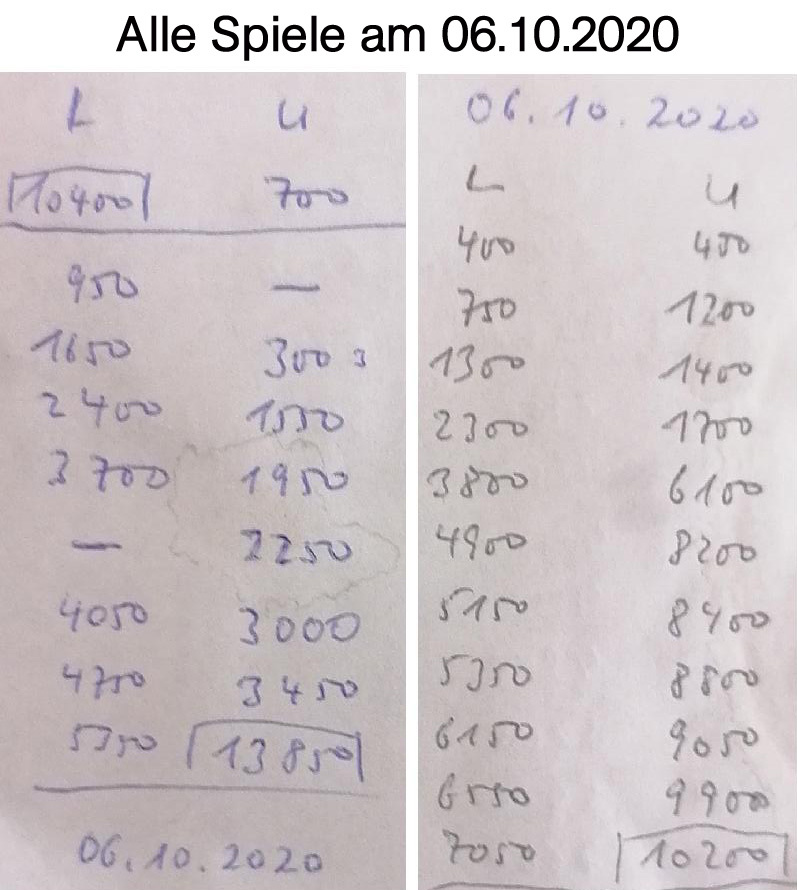 Alle Spiele am 06.10.2020
L U
10400 700
950 —
1650 300 3
2400 1550
3700 1950
— 2250
4050 3000
4750 3450
5350 13850
06.10.2020
06.10.2020
L U
400 450
750 1200
1300 1400
2300 1700
3800 6100
4900 8200
5150 8400
5350 8800
6150 9050
6550 9900
7050 10200